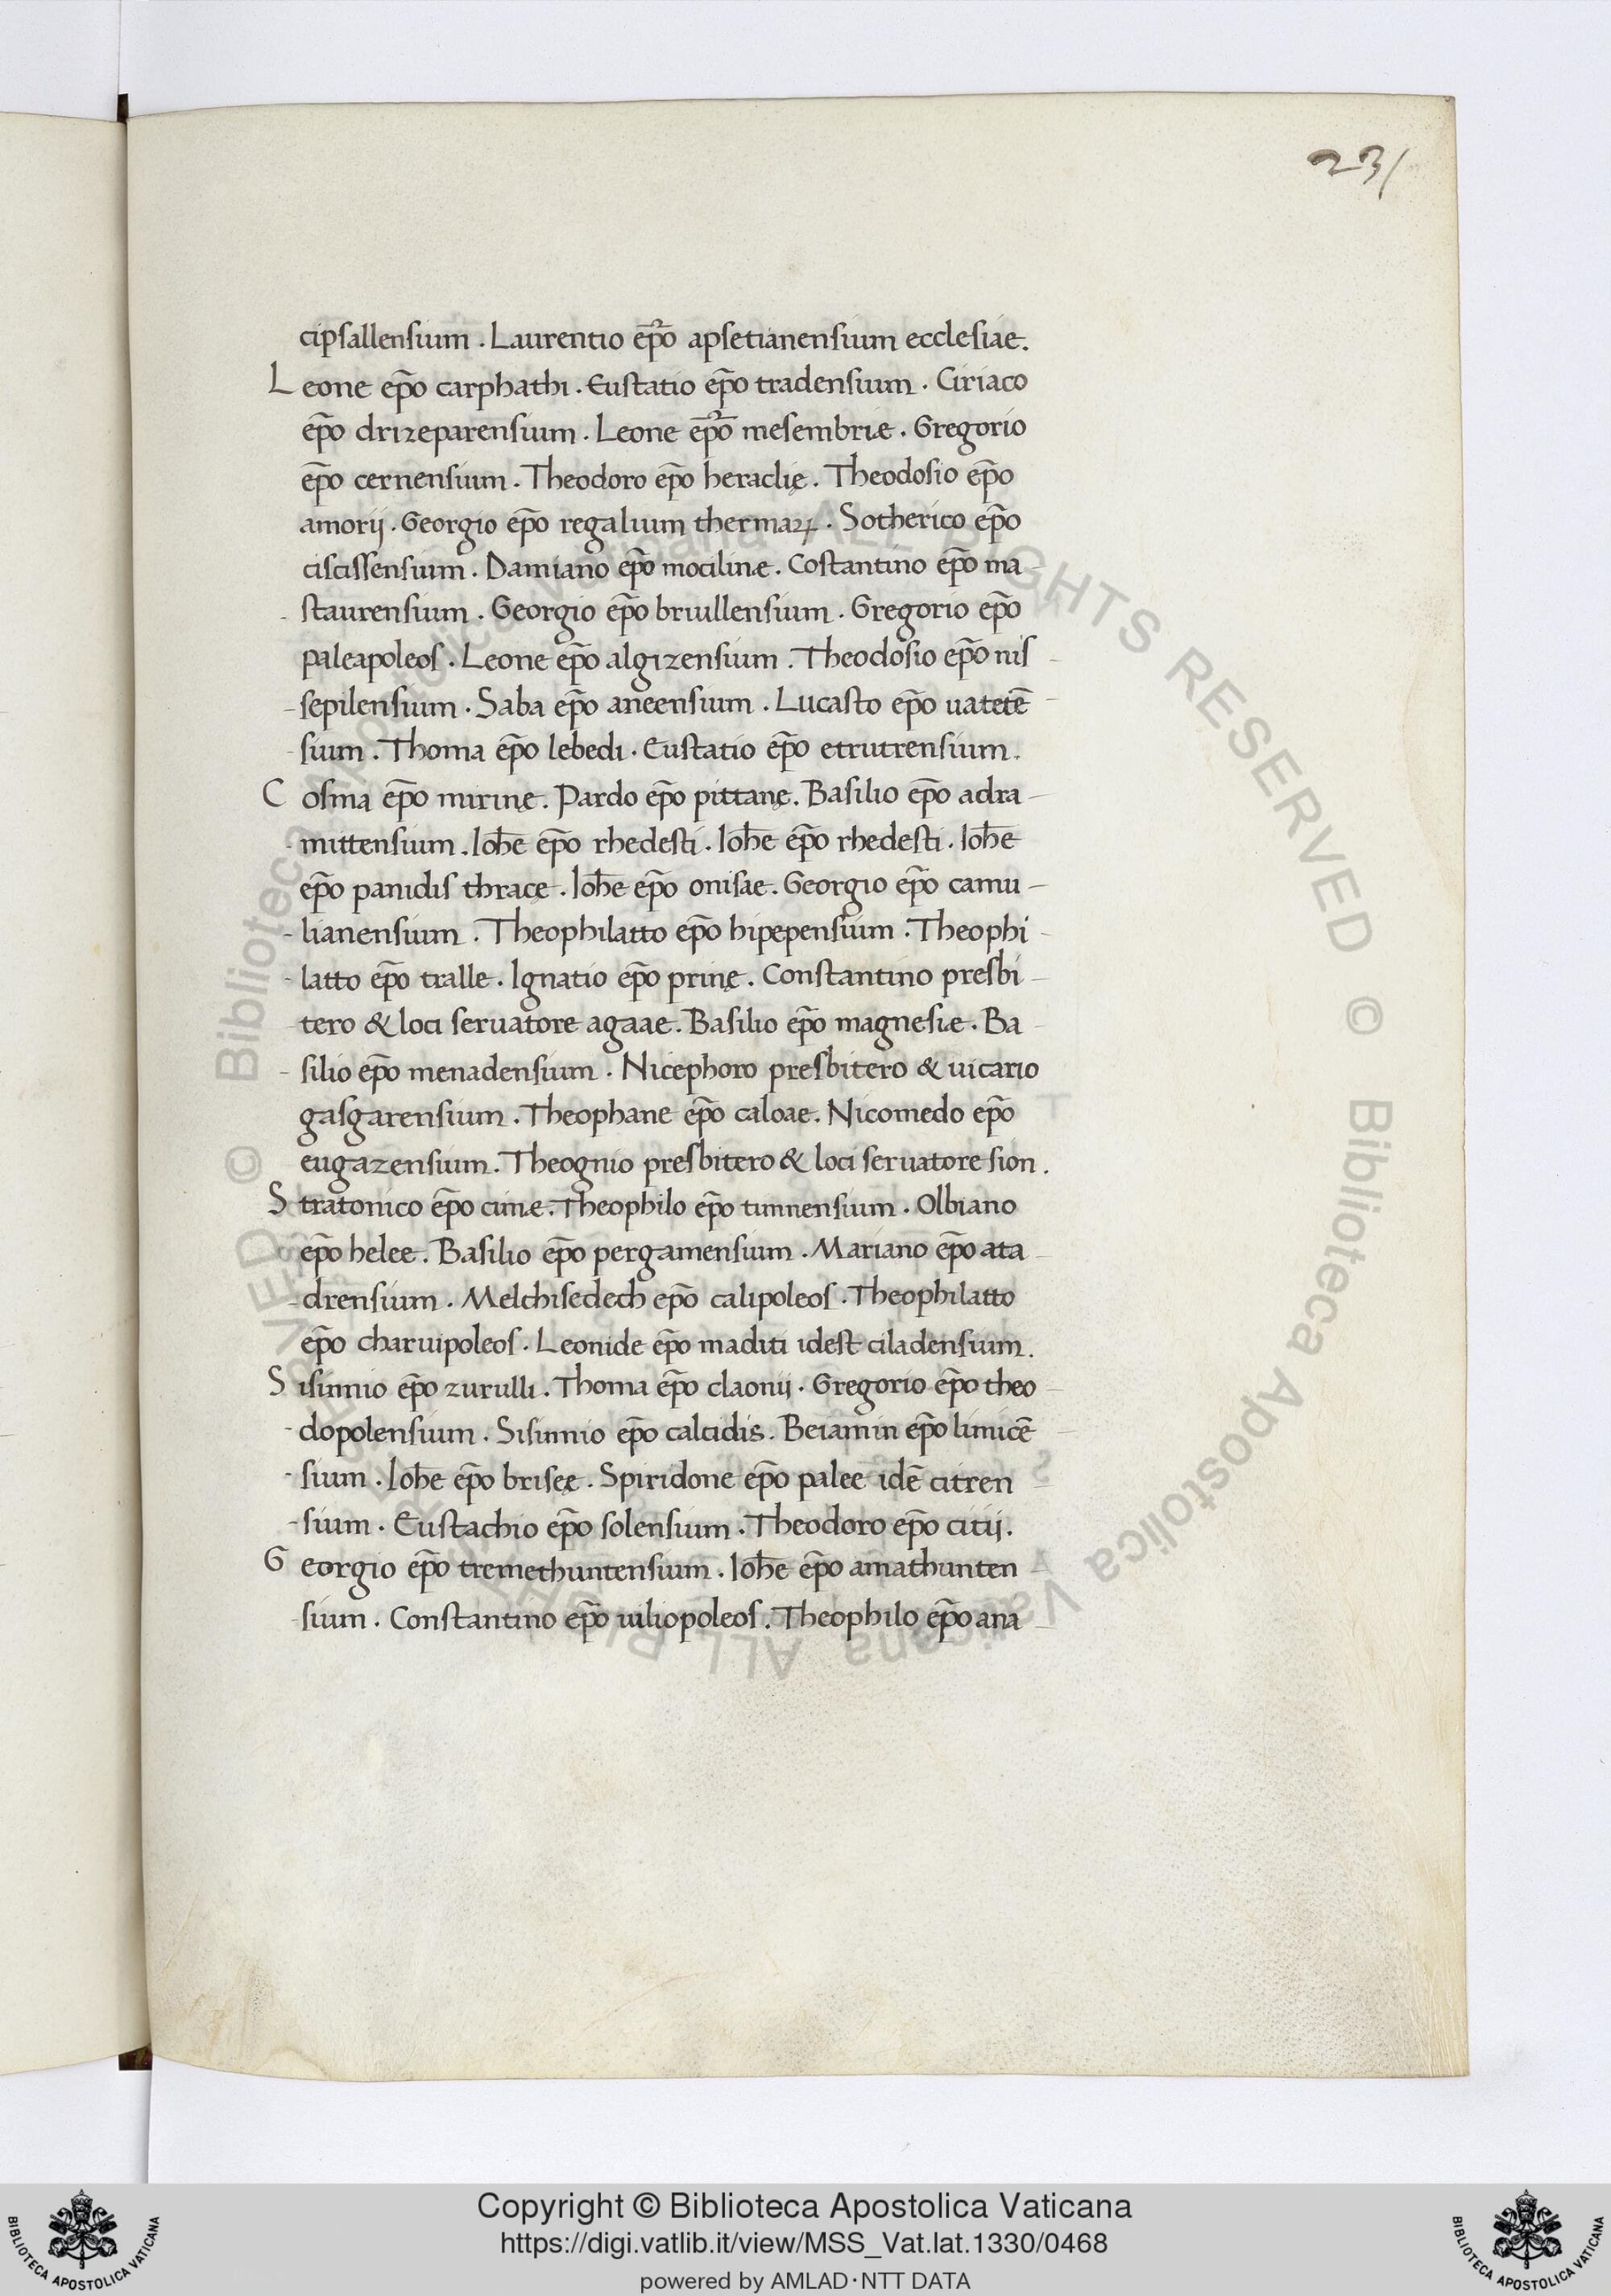 231
cipsallensium . Laurentio ep̄o apsetianensium ecclesiae.
Leone ep̄o carphathi . Eustatio ep̄o tradensium . Ciriaco
ep̄o drizeparensium . Leone ep̄o mesembriæ . Gregorio
ep̄o cernensium . Theodoro ep̄o heraclię . Theodosio ep̄o
amorij . Georgio ep̄o regalium thermaꝝ . Sotherico ep̄o
ciscissensium . Damiano ep̄o mocilinæ . Costantino ep̄o ma-
-staurensium . Georgio ep̄o briullensium . Gregorio ep̄o
paleapoleos . Leone ep̄o algizensium . Theodosio ep̄o nis-
-sepilensium . Saba ep̄o aneensium . Lucasto ep̄o uatetē-
-sium . Thoma ep̄o lebedi . Eustatio ep̄o etrutrensium .
Cosma ep̄o mirinę . Pardo ep̄o pittanę . Basilio ep̄o adra-
-mittensium . Ioh̄e ep̄o rhedesti . Ioh̄e ep̄o rhedesti . Ioh̄e
ep̄o panidis thracę . Ioh̄e ep̄o onisae . Georgio ep̄o camu-
-lianensium . Theophilatto ep̄o hipepensium . Theophi-
-latto ep̄o tralle . Ignatio ep̄o prinę . Constantino presbi-
-tero & loci seruatore agaae . Basilio ep̄o magnesiæ . Ba-
-silio ep̄o menadensium . Nicephoro presbitero & uicario
gasgarensium . Theophane ep̄o caloae . Nicomedo ep̄o
eugazensium . Theognio presbitero & loci seruatore sion .
Stratonico ep̄o cimæ . Theophilo ep̄o timnensium . Olbiano
ep̄o helee . Basilio ep̄o pergamensium . Mariano ep̄o ata-
-drensium . Melchisedech ep̄o calipoleos . Theophilatto
ep̄o charuipoleos . Leonide ep̄o maditi idest ciladensium .
Sisinnio ep̄o zurulli . Thoma ep̄o claonij . Gregorio ep̄o theo-
-dopolensium . Sisinnio ep̄o calcidis . Beiamin ep̄o limicē-
-sium . Ioh̄e ep̄o briseę . Spiridone ep̄o palee idē citren-
-sium . Eustachio ep̄o solensium . Theodoro ep̄o citij .
Georgio ep̄o tremethuntensium . Ioh̄e ep̄o amathunten-
-sium . Constantino ep̄o uiliopoleos . Theophilo ep̄o ana-
© Biblioteca Apostolica Vaticana ALL RIGHTS RESERVED
© Biblioteca Apostolica Vaticana ALL RIGHTS RESERVED
Copyright © Biblioteca Apostolica Vaticana
https://digi.vatlib.it/view/MSS_Vat.lat.1330/0468
powered by AMLAD·NTT DATA
BIBLIOTECA APOSTOLICA VATICANA
BIBLIOTECA APOSTOLICA VATICANA